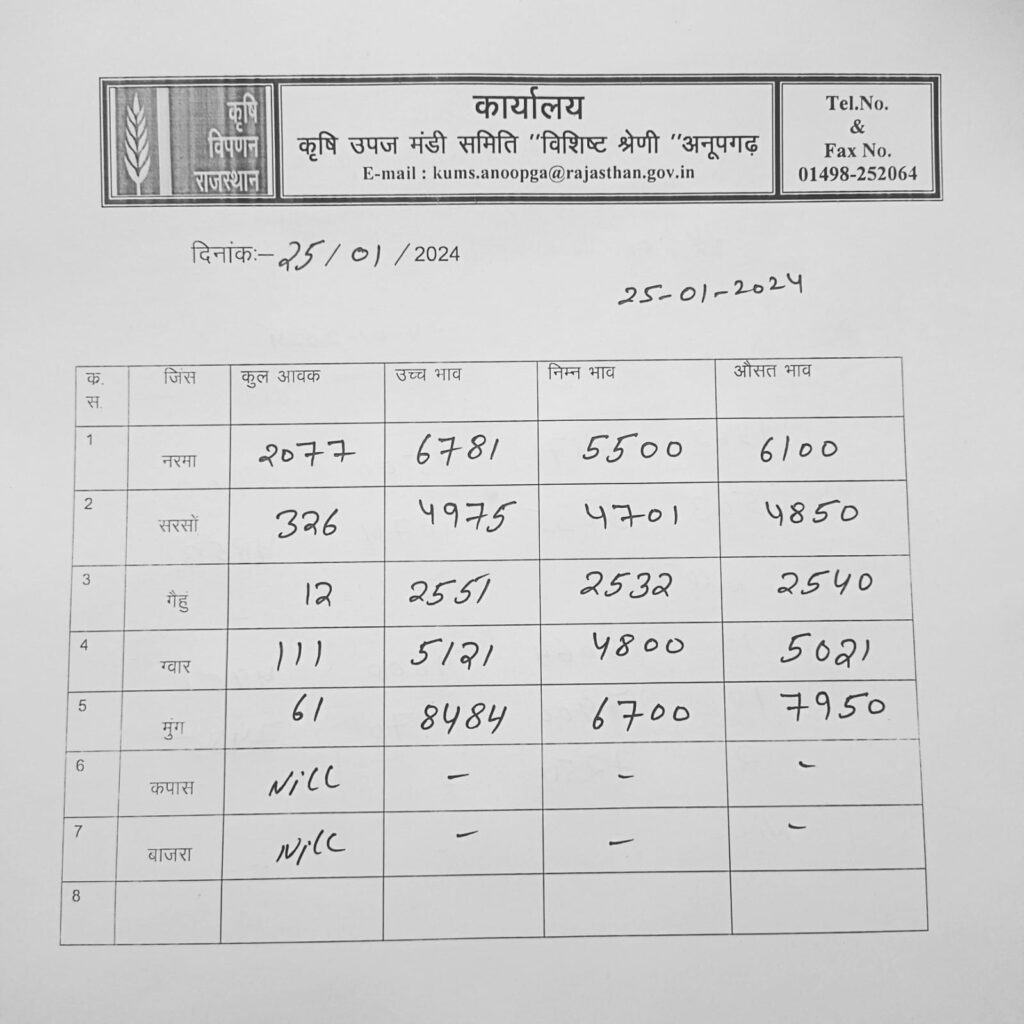 कृषि
विपणन
राजस्थान
कार्यालय
कृषि उपज मंडी समिति "विशिष्ट श्रेणी "अनूपगढ़
E-mail : kums.anoopga@rajasthan.gov.in
Tel.No.
&
Fax No.
01498-252064
दिनांकः– 25/01/2024
25-01-2024
क. स. जिंस कुल आवक उच्च भाव निम्न भाव औसत भाव
1 नरमा 2077 6781 5500 6100
2 सरसों 326 4975 4701 4850
3 गैहुं 12 2551 2532 2540
4 ग्वार 111 5121 4800 5021
5 मुंग 61 8484 6700 7950
6 कपास Nill - - -
7 बाजरा Nill - - -
8